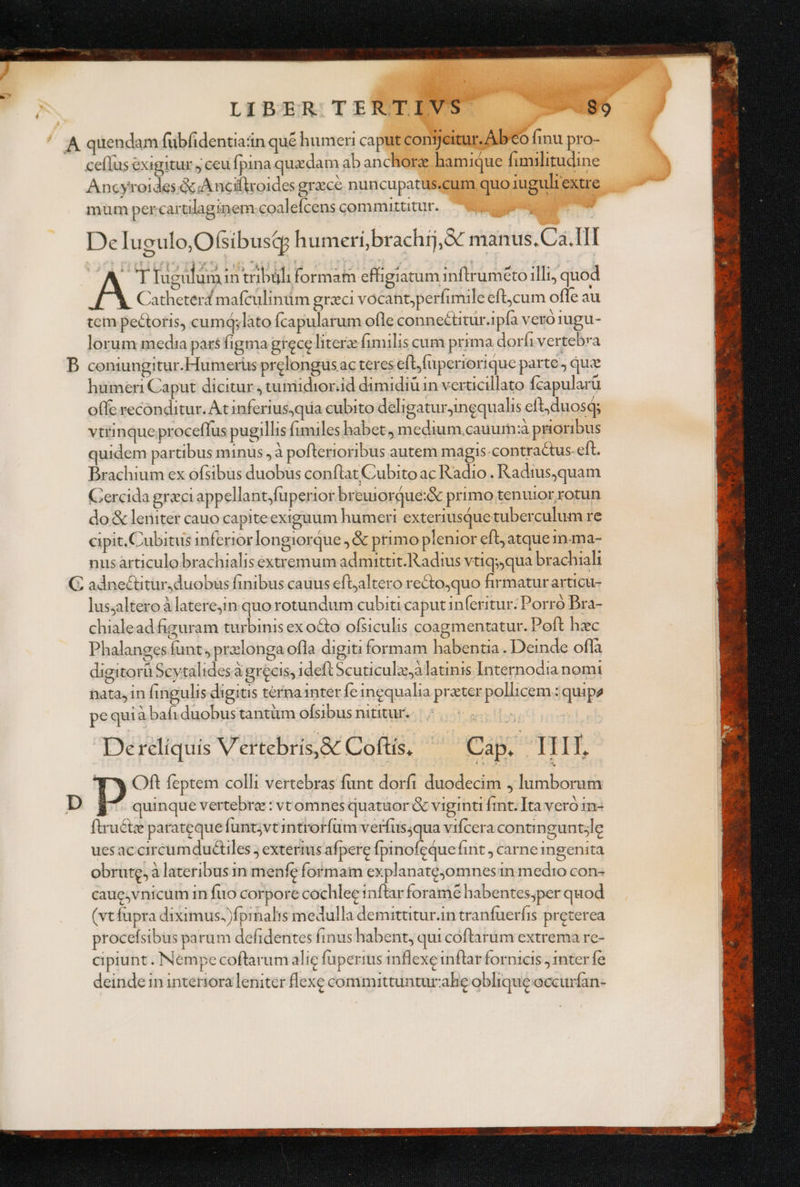 LIBER TERTIVS 89
A quendam ſubſidentia:in quē humeri caput conijcitur. Ab eo ſinu pro-
ceſſus exigitur, ceu ſpina quædam ab anchoræ hamique ſimilitudine
Ancyroides & Anciſtroides græcè nuncupatus. cum quo iuguli extre
mùm per cartilaginem coaleſcens committitur.
De Iugulo, Oſsibusq; humeri, brachij, & manus. Ca. III
AT Iugulum in tribùli formam effigiatum inſtrumēto illi, quod
Catheterá maſculinùm græci vocant, perſimile eſt, cum oſſe au
tem pectoris, cumq; lato ſcapularum oſſe connectitur. ipſa verò iugu-
lorum media pars ſigma gręcę literæ ſimilis cum prima dorſi vertebra
B coniungitur. Humerus pręlongus ac teres eſt, ſuperiorique parte, quæ
humeri Caput dicitur, tumidior. id dimidiū in verticillato ſcapularū
oſſe reconditur. At inferius, qùa cubito deligatur, inęqualis eſt, duosq;
vtrinque proceſſus pugillis ſimiles habet, medium cauum: à prioribus
quidem partibus minus, à poſterioribus autem magis contractus eſt.
Brachium ex oſsibus duobus conſtat Cubito ac Radio. Radius, quam
Cercida græci appellant, ſuperior breuiorque: & primo tenuior rotun
do & leniter cauo capite exiguum humeri exteriusque tuberculum re
cipit. Cubitus inferior longiorque, & primo plenior eſt, atque in ma-
nus articulo brachialis extremum admittit. Radius vtiq;, qua brachiali
C adnectitur, duobus ſinibus cauus eſt, altero recto, quo firmatur articu-
lus, altero à latere, in quo rotundum cubiti caput inſeritur. Porrò Bra-
chiale ad figuram turbinis ex octo oſsiculis coagmentatur. Poſt hæc
Phalanges ſunt, prælonga oſſa digiti formam habentia. Deinde oſſa
digitorū Scytalides à gręcis, ideſt Scuticulæ, à latinis Internodia nomi
nata, in ſingulis digitis terna inter ſe inęqualia præter pollicem: quip‐
pe qui à baſi duobus tantùm oſsibus nititur.
De reliquis Vertebris, & Coſtis. Cap. IIII.
D POſt ſeptem colli vertebras ſunt dorſi duodecim, lumborum
quinque vertebræ: vt omnes quatuor & viginti ſint. Ita verò in-
ſtructæ paratęque ſunt, vt introrſùm verſus, qua viſcera contingunt, lę
ues ac circumductiles, exterius aſperę ſpinoſęque ſint, carne ingenita
obrutę, à lateribus in menſę formam explanatę, omnes in medio con-
cauę, vnicum in ſuo corpore cochleę inſtar foramē habentes, per quod
(vt ſupra diximus.) ſpinalis medulla demittitur. in tranſuerſis pręterea
proceſsibus parum deſidentes ſinus habent, qui coſtarum extrema re-
cipiunt. Nempe coſtarum alię ſuperius inflexę inſtar fornicis, inter ſe
deinde in interiora leniter flexę committuntur: alię obliquę occurſan-